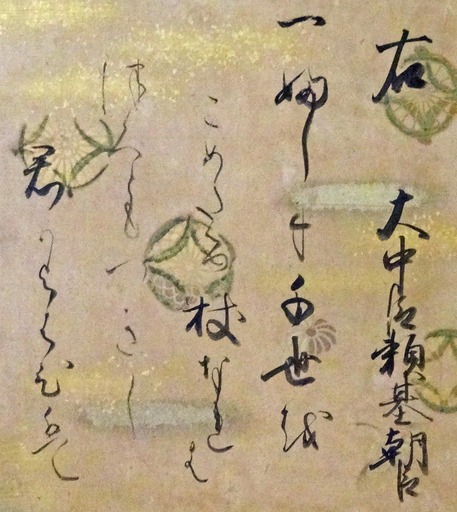 右 大中臣頼基朝臣
一ふしに千世を
こめたる杖なれは
つくともつきし
君かよはひは